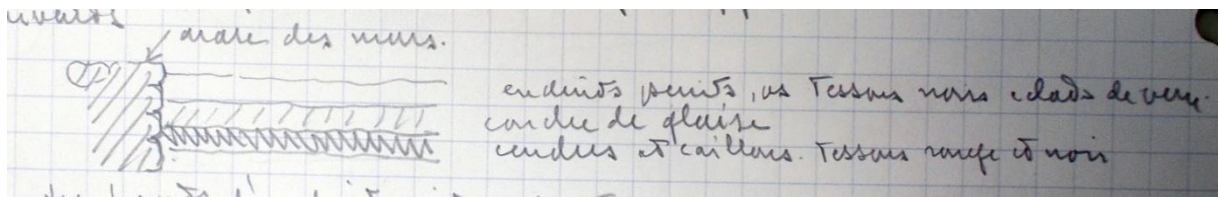 des murs.
enduits peints, os tessons noirs éclats de verre.
couche de glaise
cendres et cailloux. Tessons rouge et noir